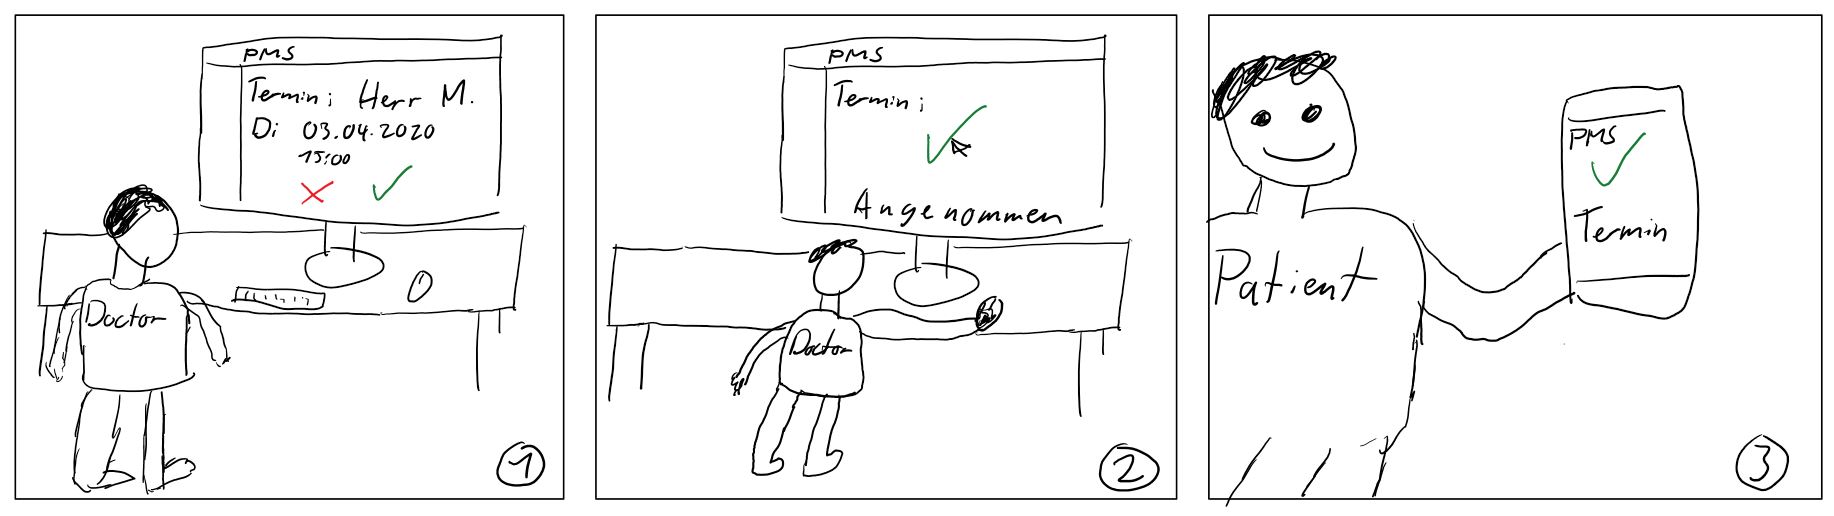 PMS
Termin: Herr M.
Di 03.04.2020
15:00
Doctor
1
PMS
Termin:
Angenommen
Doctor
2
Patient
PMS
Termin
3